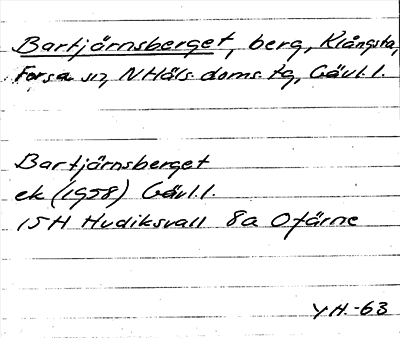 Bartjärnsberget, berg, Klångsta,
Forsa sn, N Häls. doms. tg, Gävl. l.
Bartjärnsberget
ek (1958) Gävl. l.
15H Hudiksvall 8a Ofärne
YH.-63